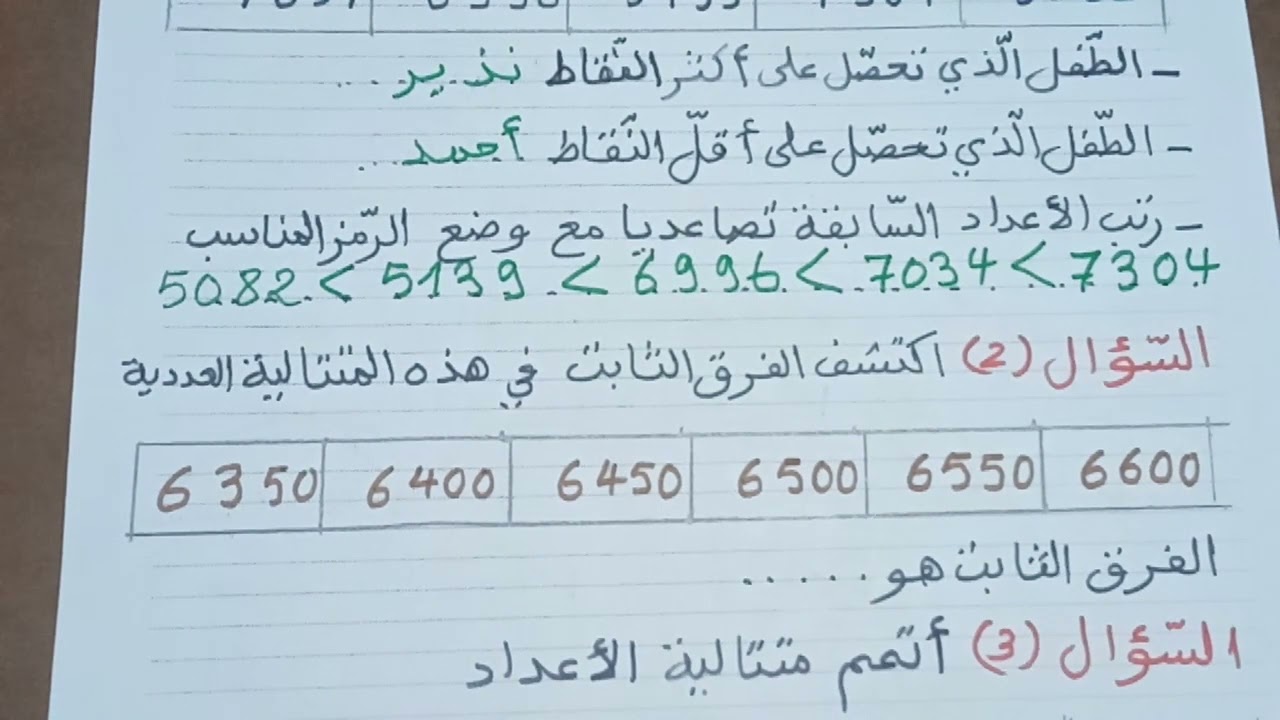 - الطّفل الّذي تحصّل على أكثر النّقاط نذير ...
- الطّفل الّذي تحصّل على أقلّ النّقاط أحمد ...
- رتب الأعداد السّابقة تصاعديا مع وضع الرّمز المناسب
5082 < 5139 < 6996 < 7034 < 7304
السّؤال (2) اكتشف الفرق الثابت في هذه المتتالية العددية
6350 6400 6450 6500 6550 6600
الفرق الثابت هو .....
السّؤال (3) أتمم متتالية الأعداد